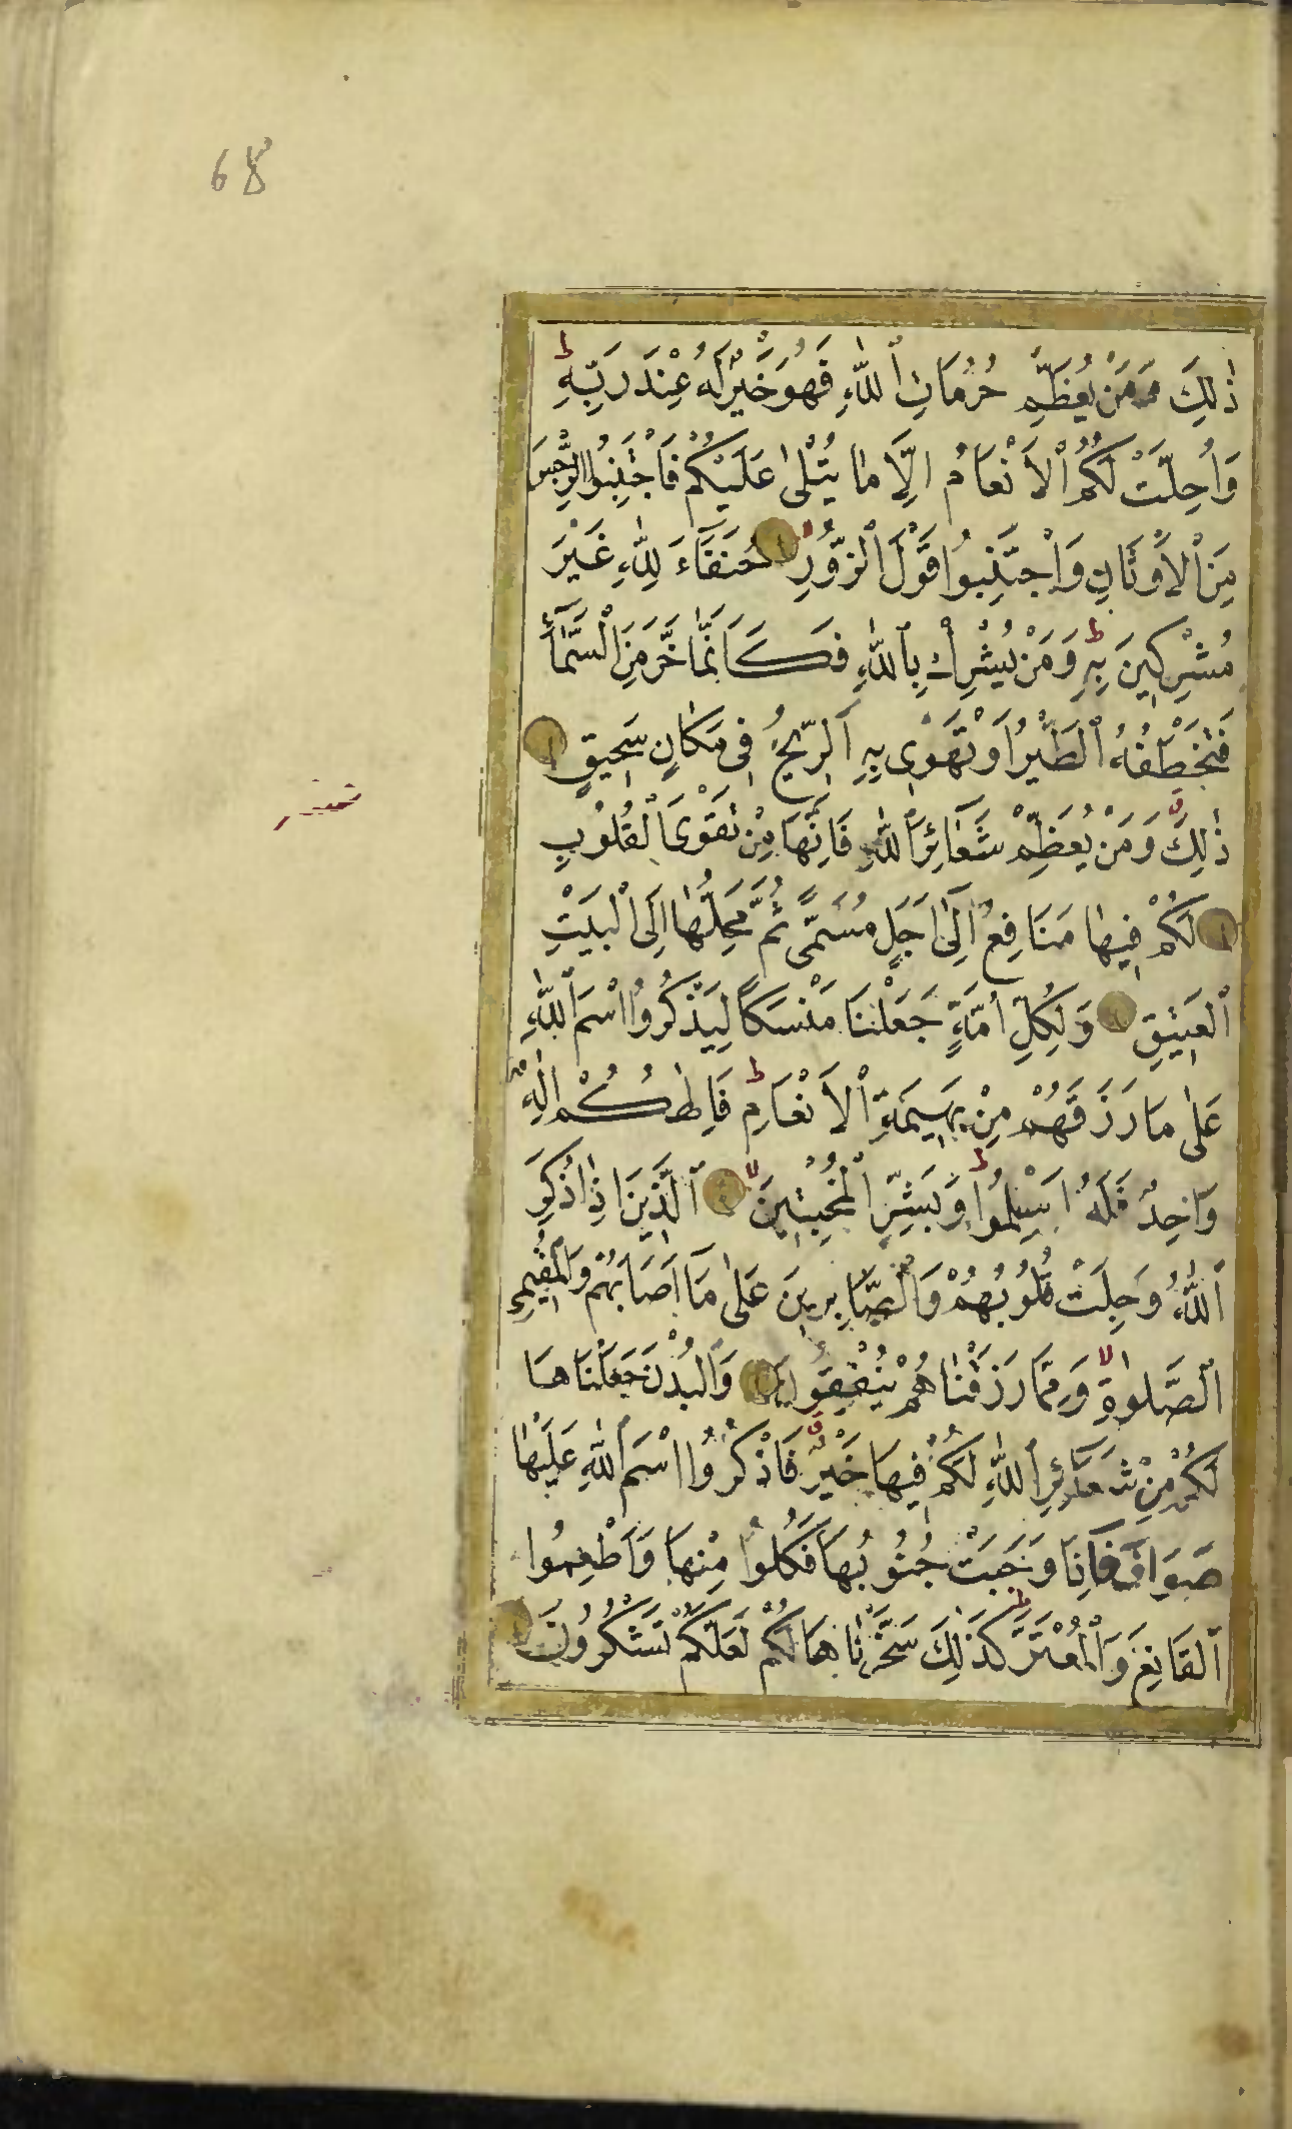 68
ذٰلِكَ وَمَنْ يُعَظِّمْ حُرُمَاتِ ٱللّٰهِ فَهُوَ خَيْرٌ لَهُ عِنْدَ رَبِّهِ ط
وَاُحِلَّتْ لَكُمُ ٱلْاَنْعَامُ اِلَّا مَا يُتْلٰى عَلَيْكُمْ فَاجْتَنِبُوا الرِّجْسَ
مِنَ ٱلْاَوْثَانِ وَاجْتَنِبُوا قَوْلَ ٱلزُّورِ لا حُنَفَاءَ لِلّٰهِ غَيْرَ
مُشْرِكِينَ بِهِ ط وَمَنْ يُشْرِكْ بِٱللّٰهِ فَكَاَنَّمَا خَرَّ مِنَ السَّمَاءِ
فَتَخْطَفُهُ ٱلطَّيْرُ اَوْ تَهْوِى بِهِ ٱلرِّيحُ فِى مَكَانٍ سَحِيقٍ
ذٰلِكَ ق وَمَنْ يُعَظِّمْ شَعَائِرَ ٱللّٰهِ فَاِنَّهَا مِنْ تَقْوَى ٱلْقُلُوبِ
لَكُمْ فِيهَا مَنَافِعُ اِلٰى اَجَلٍ مُسَمًّى ثُمَّ مَحِلُّهَا اِلَى الْبَيْتِ
ٱلْعَتِيقِ وَلِكُلِّ اُمَّةٍ جَعَلْنَا مَنْسَكًا لِيَذْكُرُوا اسْمَ ٱللّٰهِ
عَلٰى مَا رَزَقَهُمْ مِنْ بَهِيمَةِ ٱلْاَنْعَامِ ط فَاِلٰهُكُمْ اِلٰهٌ
وَاحِدٌ فَلَهُ اَسْلِمُوا ط وَبَشِّرِ ٱلْمُخْبِتِينَ لا ٱلَّذِينَ اِذَا ذُكِرَ
ٱللّٰهُ وَجِلَتْ قُلُوبُهُمْ وَٱلصَّابِرِينَ عَلٰى مَا اَصَابَهُمْ وَٱلْمُقِيمِى
ٱلصَّلٰوةِ لا وَمِمَّا رَزَقْنَاهُمْ يُنْفِقُونَ وَٱلْبُدْنَ جَعَلْنَاهَا
لَكُمْ مِنْ شَعَائِرِ ٱللّٰهِ لَكُمْ فِيهَا خَيْرٌ ق فَاذْكُرُوا اسْمَ ٱللّٰهِ عَلَيْهَا
صَوَافَّ فَاِذَا وَجَبَتْ جُنُوبُهَا فَكُلُوا مِنْهَا وَاَطْعِمُوا
ٱلْقَانِعَ وَٱلْمُعْتَرَّ ط كَذٰلِكَ سَخَّرْنَاهَا لَكُمْ لَعَلَّكُمْ تَشْكُرُونَ